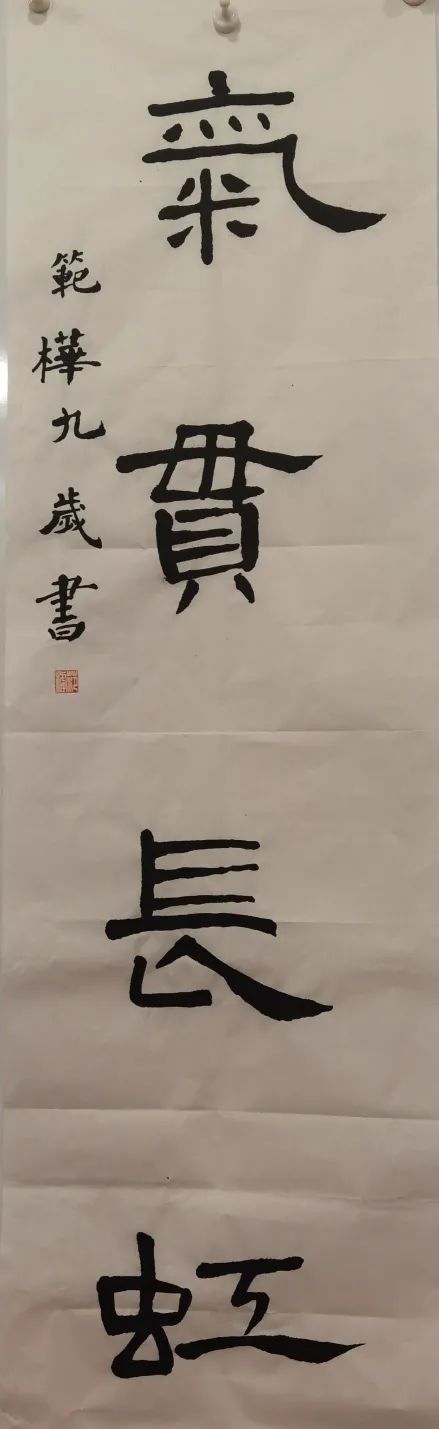 氣貫長虹
範樺九歲書